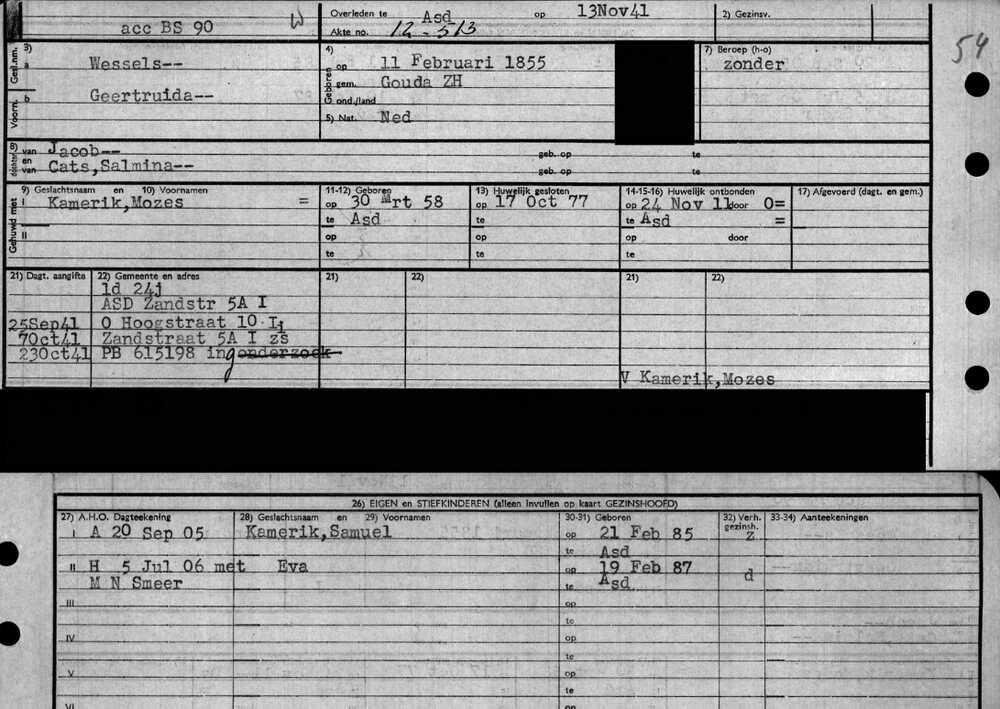 acc BS 90 W
Overleden te Asd op 13Nov41
Akte no. 12-513
2) Gezinsv.
54
3)
Gesl.nm. a Wessels--
Voorn. b Geertruida--
4)
Geboren op 11 Februari 1855
gem. Gouda ZH
ond./land
5) Nat. Ned
7) Beroep (h-o)
zonder
8) van Jacob-- geb. op te
en
van Cats,Salmina-- geb. op te
Gehuwd met
9) Geslachtsnaam en 10) Voornamen
I Kamerik,Mozes =
II
11-12) Geboren
op 30 Mrt 58
te Asd
op
te
13) Huwelijk gesloten
op 17 Oct 77
te
op
te
14-15-16) Huwelijk ontbonden
op 24 Nov 11 door O=
te Asd =
op door
te
17) Afgevoerd (dagt. en gem.)
21) Dagt. aangifte 22) Gemeente en adres 21) 22) 21) 22)
1d 24j
ASD Zandstr 5A I
25Sep41 O Hoogstraat 10 I
7Oct41 Zandstraat 5A I zs
23Oct41 PB 615198 ingonderzoek
V Kamerik,Mozes
26) EIGEN en STIEFKINDEREN (alleen invullen op kaart GEZINSHOOFD)
27) A.H.O. Dagteekening 28) Geslachtsnaam en 29) Voornamen 30-31) Geboren 32) Verh. gezinsh. 33-34) Aanteekeningen
I A 20 Sep 05 Kamerik,Samuel op 21 Feb 85 Z
te Asd
II H 5 Jul 06 met Eva op 19 Feb 87 d
M N Smeer te Asd
III op
te
IV op
te
V op
te
VI op